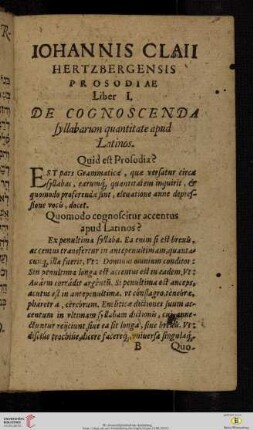 IOHANNIS CLAII
HERTZBERGENSIS
PROSODIAE
Liber I.
DE COGNOSCENDA
syllabarum quantitate apud
Latinos.
Quid est Prosodia?
EST pars Grammaticæ, quæ versatur circa
syllabas, earumq́; quantitatem inquirit, &
quomodo proferenda sint, eleuatione anne depres-
sione vocis, docet.
Quomodo cognoscitur accentus
apud Latinos?
Ex penultima syllaba. Ea enim si est breuis,
accentus transfertur in antepenultimam, quanta-
cunq́; illa fuerit, Vt: Dominus omnium conditor:
Sin penultima longa est accentus est in eadem, Vt:
Si penultima est anceps,
acutus est in antepenultima. vt
pharetra, cerebrum. Encliticæ dictiones suum ac-
centum in vltimam syllabam dictionis, cui anne-
ctuntur reijciunt, siue ea sit longa, siue breuis. Vt:
B Quo-